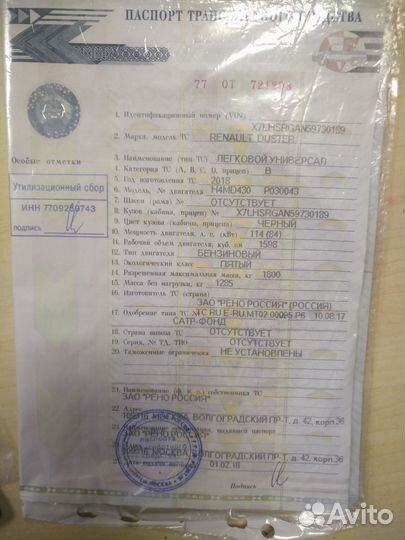 ПАСПОРТ ТРАНСПОРТНОГО СРЕДСТВА
77 ОТ 721293
1. Идентификационный номер (VIN) X7LHSRGAN59730189
2. Марка, модель ТС RENAULT DUSTER
3. Наименование (тип ТС) ЛЕГКОВОЙ УНИВЕРСАЛ
4. Категория ТС (A, B, C, D, прицеп) B
5. Год изготовления ТС 2018
6. Модель, № двигателя H4MD430 P030043
7. Шасси (рама) № ОТСУТСТВУЕТ
8. Кузов (кабина, прицеп) № X7LHSRGAN59730189
9. Цвет кузова (кабины, прицепа) ЧЕРНЫЙ
10. Мощность двигателя, л. с. (кВт) 114 (84)
11. Рабочий объем двигателя, куб. см 1598
12. Тип двигателя БЕНЗИНОВЫЙ
13. Экологический класс ПЯТЫЙ
14. Разрешенная максимальная масса, кг 1800
15. Масса без нагрузки, кг 1285
16. Изготовитель ТС (страна)
ЗАО "РЕНО РОССИЯ" (РОССИЯ)
17. Одобрение типа ТС № ТС RU E-RU.MT02.00085.P6 10.08.17
САТР-ФОНД
18. Страна вывоза ТС ОТСУТСТВУЕТ
19. Серия, № ТД, ТПО ОТСУТСТВУЕТ
20. Таможенные ограничения НЕ УСТАНОВЛЕНЫ
21. Наименование (ф. и. о.) собственника ТС
ЗАО "РЕНО РОССИЯ"
22. Адрес
МОСКВА, ВОЛГОГРАДСКИЙ ПР-Т, д. 42, корп.36
23. Наименование организации, выдавшей паспорт
ЗАО "РЕНО РОССИЯ"
24. Адрес
МОСКВА, ВОЛГОГРАДСКИЙ ПР-Т, д. 42, корп.36
25. Дата выдачи паспорта 01.02.18
Подпись
Особые отметки
Утилизационный сбор
ИНН 7709259743
подпись
Avito